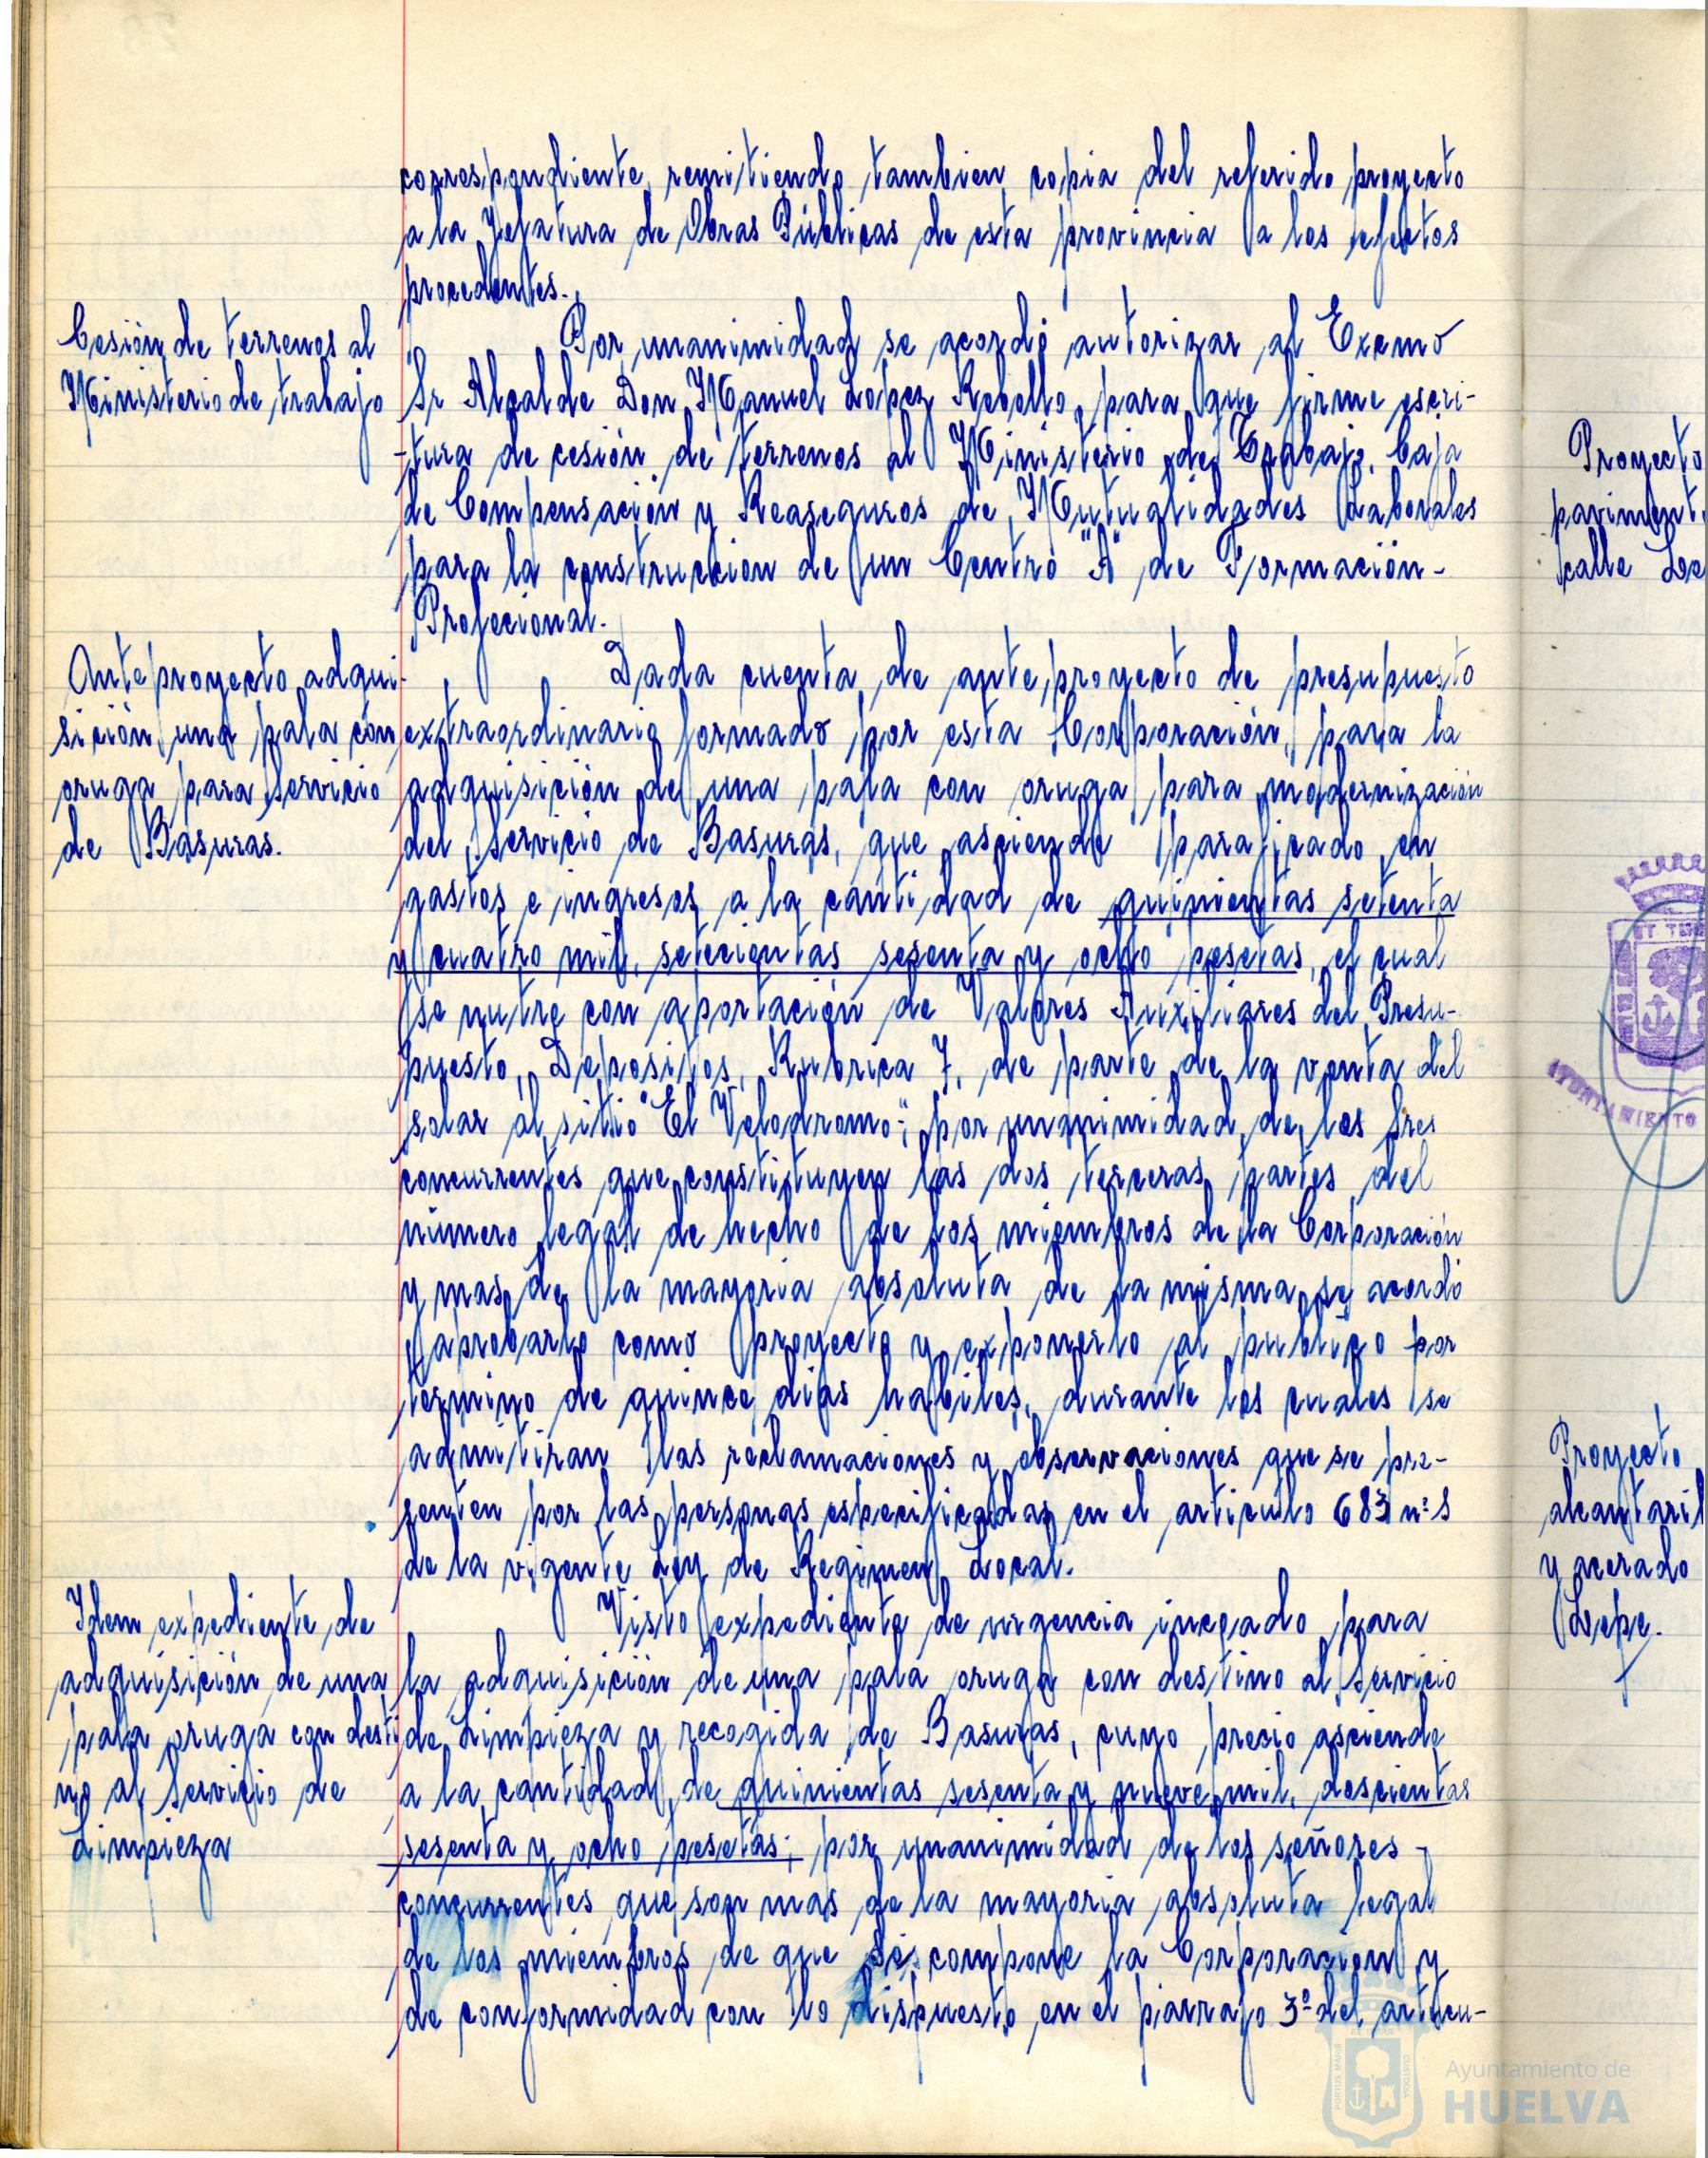 correspondiente, remitiendo tambien copia del referido proyecto
a la Jefatura de Obras Públicas de esta provincia a los efectos
procedentes.
Cesión de terrenos al
Ministerio de trabajo
Por unanimidad se acordó autorizar al Excmo
Sr Alcalde Don Manuel Lopez Rebollo, para que firme escri-
-tura de cesión de terrenos al Ministerio de Trabajo, Caja
de Compensación y Reaseguros de Mutualidades Laborales
para la construccion de un Centro "A" de Formación-
Profecional.
Anteproyecto adqui-
sición una pala con
oruga para servicio
de Basuras.
Dada cuenta de anteproyecto de presupuesto
extraordinario formado por esta Corporación, para la
adquisición de una pala con oruga para modernización
del servicio de Basuras, que asciende parificado en
gastos e ingresos a la cantidad de quinientas setenta
y cuatro mil, setecientas sesenta y ocho pesetas, el cual
se nutre con aportación de Valores Auxiliares del Presu-
puesto, Depositos, Rubrica 7, de parte de la venta del
solar al sitio "El Velodromo"; por unanimidad de los Sres
concurrentes que constituyen las dos terceras partes del
número legal de hecho de los miembros de la Corporación
y mas de la mayoria absoluta de la misma se acordó
aprobarlo como proyecto y exponerlo al publico por
termino de quince dias habiles, durante los cuales se
admitiran las reclamaciones y observaciones que se pre-
senten por las personas especificadas en el articulo 683 nº 1
de la vigente Ley de Regimen Local.
Idem expediente de
adquisición de una
pala oruga con desti
no al servicio de
Limpieza
Visto expediente de urgencia incoado para
la adquisición de una pala oruga con destino al servicio
de Limpieza y recogida de Basuras, cuyo precio asciende
a la cantidad de quinientas sesenta y nueve mil, doscientas
sesenta y ocho pesetas; por unanimidad de los señores -
concurrentes que son mas de la mayoria absoluta legal
de los miembros de que se compone la Corporacion y
de conformidad con lo dispuesto en el parrafo 3º del articu-
Proyecto
paviment.
calle
ET TE
AYUNTAMIENTO
Proyecto
alcantaril
y acerado
Lepe.
PORTUS MARIS
CUSTODIA
Ayuntamiento de
HUELVA